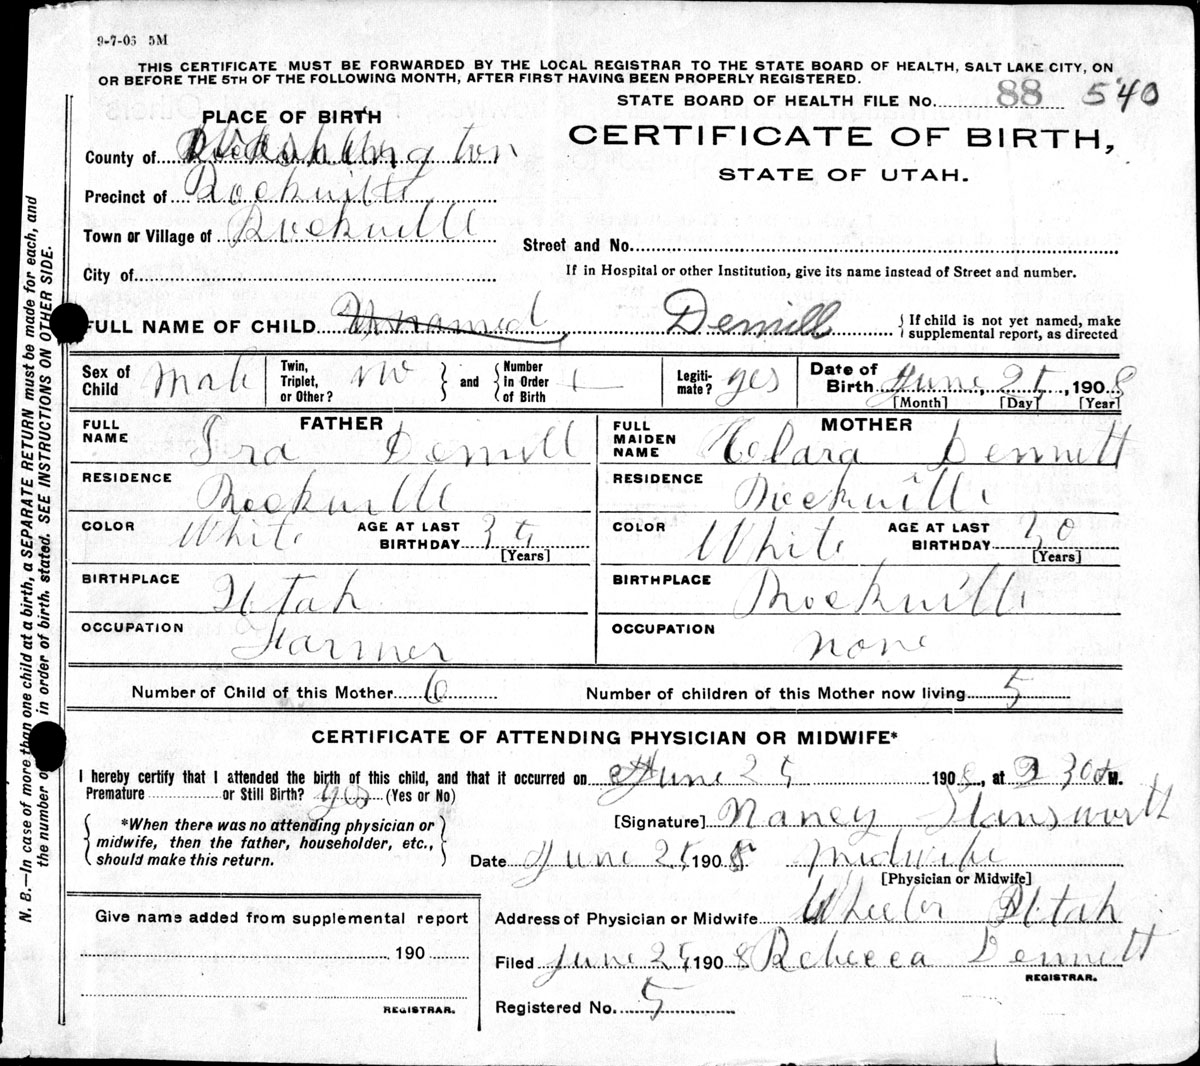 9-7-06 5M
THIS CERTIFICATE MUST BE FORWARDED BY THE LOCAL REGISTRAR TO THE STATE BOARD OF HEALTH, SALT LAKE CITY, ON
OR BEFORE THE 5TH OF THE FOLLOWING MONTH, AFTER FIRST HAVING BEEN PROPERLY REGISTERED.
STATE BOARD OF HEALTH FILE No. 88 540
PLACE OF BIRTH
CERTIFICATE OF BIRTH,
STATE OF UTAH.
County of Washington
Precinct of Rockville
Town or Village of Rockville
Street and No.
City of
If in Hospital or other Institution, give its name instead of Street and number.
FULL NAME OF CHILD Unnamed Demill { If child is not yet named, make supplemental report, as directed
Sex of Child Male Twin, Triplet, or Other? no } and { Number in Order of Birth Legiti- mate? yes Date of Birth June, 25, 1908
[Month] [Day] [Year]
FATHER
FULL NAME Ira Demill
RESIDENCE Rockville
COLOR White AGE AT LAST BIRTHDAY 35
[Years]
BIRTHPLACE Utah
OCCUPATION Farmer
MOTHER
FULL MAIDEN NAME Clara Dennett
RESIDENCE Rockville
COLOR White AGE AT LAST BIRTHDAY 30
[Years]
BIRTHPLACE Rockville
OCCUPATION none
Number of Child of this Mother 6 Number of children of this Mother now living 5
CERTIFICATE OF ATTENDING PHYSICIAN OR MIDWIFE*
I hereby certify that I attended the birth of this child, and that it occurred on June 25 1908, at 2 30 M.
Premature or Still Birth? yes (Yes or No)
{ *When there was no attending physician or
midwife, then the father, householder, etc.,
should make this return. }
[Signature] Nancy Stansworth
Date June 25, 1908 midwife
[Physician or Midwife]
Address of Physician or Midwife Wheeler Utah
Filed June 25, 1908 Rebecca Dennett
REGISTRAR.
Registered No. 5
Give name added from supplemental report
190
REGISTRAR.
N. B.—In case of more than one child at a birth, a SEPARATE RETURN must be made for each, and
the number o in order of birth, stated. SEE INSTRUCTIONS ON OTHER SIDE.